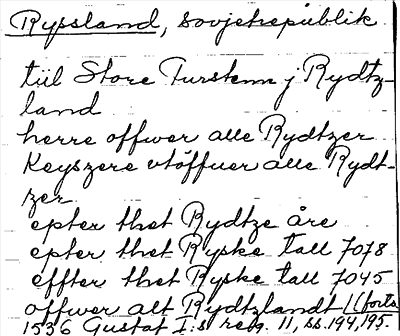 Ryssland, sovjetrepublik.
till Store Fursten j Rydtz-
land
herre offwer alle Rydtzer
Keyszere vtöffuer alle Rydt-
zer
epter thet Rydtze åre
epter thet Ryske tall 7078
effter thet Ryske tall 7045
offwer alt Rydtzlandt (forts
1536 Gustaf I:s reg. 11, ss. 194, 195.